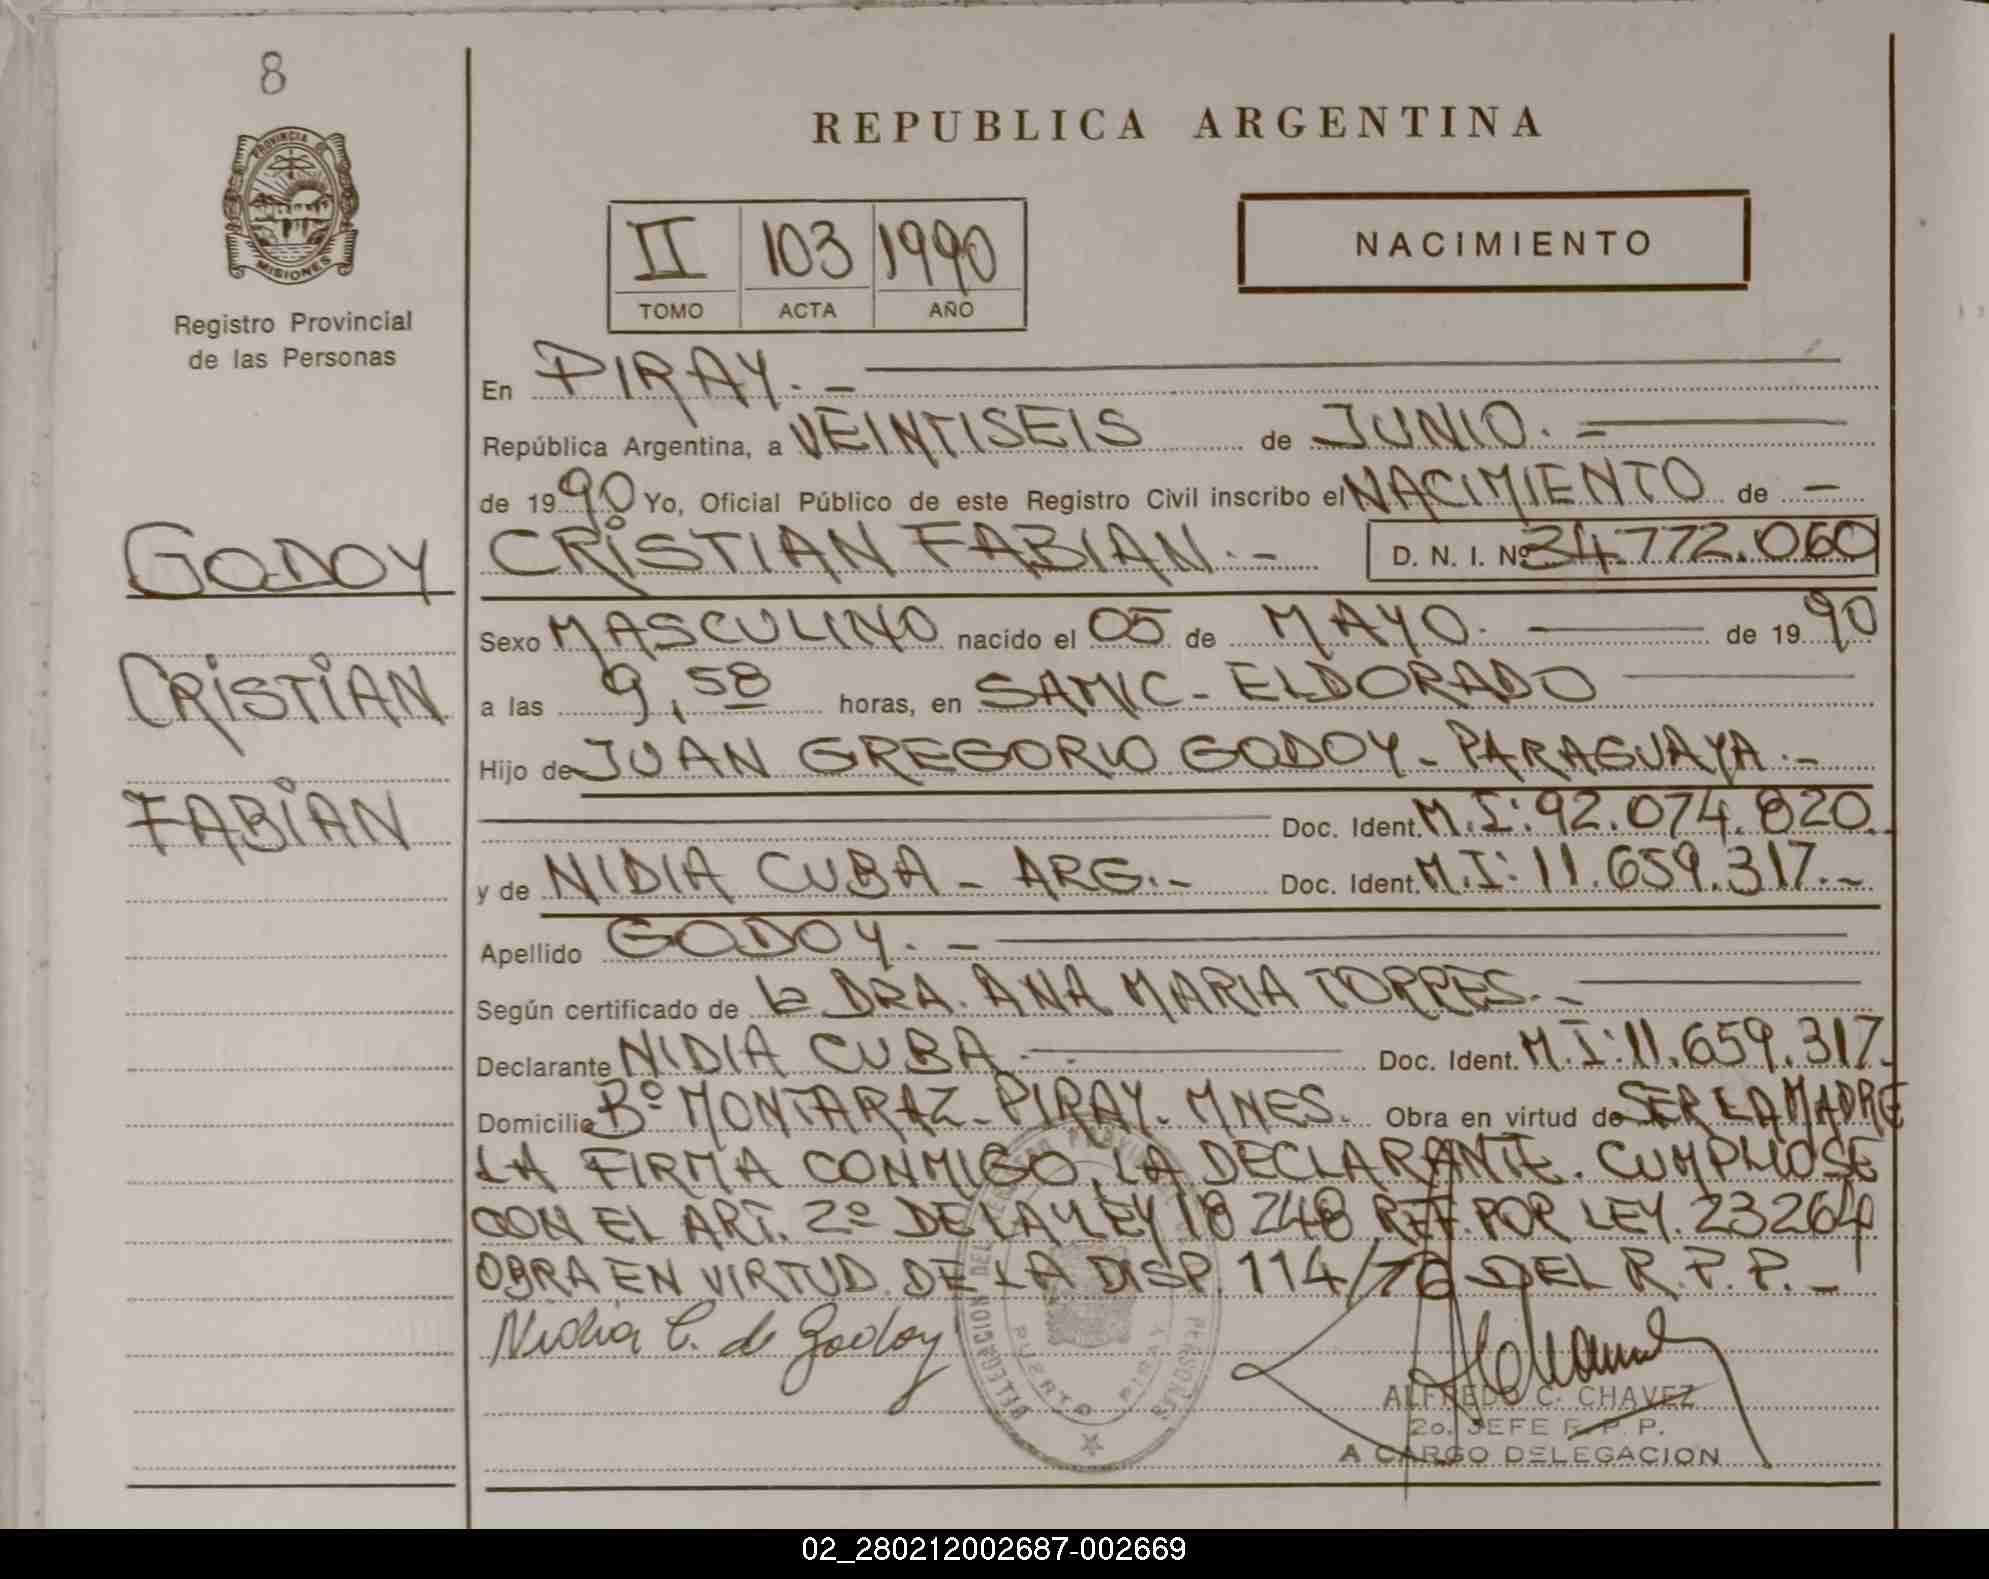 8
PROVINCIA DE
MISIONES
Registro Provincial
de las Personas
GODOY
CRISTIAN
FABIAN
REPUBLICA ARGENTINA
II 103 1990
TOMO ACTA AÑO
NACIMIENTO
En PIRAY.-
República Argentina, a VEINTISEIS de JUNIO.-
de 1990 Yo, Oficial Público de este Registro Civil inscribo el NACIMIENTO de -
CRISTIAN FABIAN.- D. N. I. Nº 34.772.060
Sexo MASCULINO nacido el 05 de MAYO. de 1990
a las 9,58 horas, en SAMIC - ELDORADO
Hijo de JUAN GREGORIO GODOY - PARAGUAYA.-
Doc. Ident. M.I: 92.074.820.
y de NIDIA CUBA - ARG.- Doc. Ident. M.I: 11.659.317.-
Apellido GODOY.-
Según certificado de la DRA. ANA MARIA TORRES.-
Declarante NIDIA CUBA.- Doc. Ident. M.I: 11.659.317.
Domicilio Bº MONTARAZ - PIRAY. MNES. Obra en virtud de SER LA MADRE
LA FIRMA CONMIGO LA DECLARANTE. CUMPLIOSE
CON EL ART. 2º DE LA LEY 18248 REF. POR LEY. 23264
OBRA EN VIRTUD DE LA DISP. 114/76 DEL R.P.P.-
Nidia C. de Godoy
DELEGACION DEL PERSONAS
PUERTO PIRAY
ALFREDO C. CHAVEZ
2o. JEFE R. P. P.
A CARGO DELEGACION
02_280212002687-002669